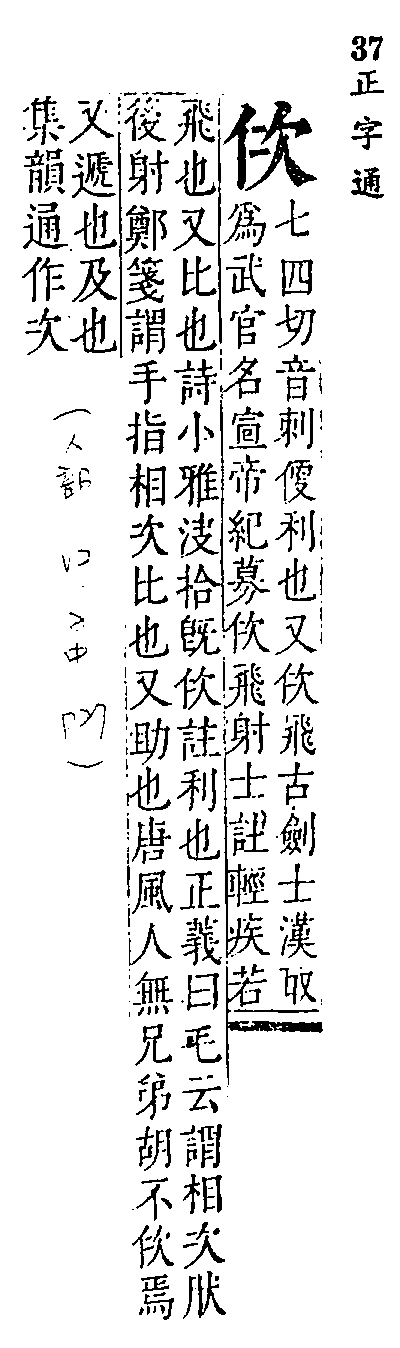 37
正字通
佽
七四切音刺便利也又佽飛古劍士漢取
爲武官名宣帝紀募佽飛射士註輕疾若
飛也又比也詩小雅決拾旣佽註利也正義曰毛云謂相次狀
後射鄭箋謂手指相次比也又助也唐風人無兄弟胡不佽焉
又遞也及也
集韻通作次